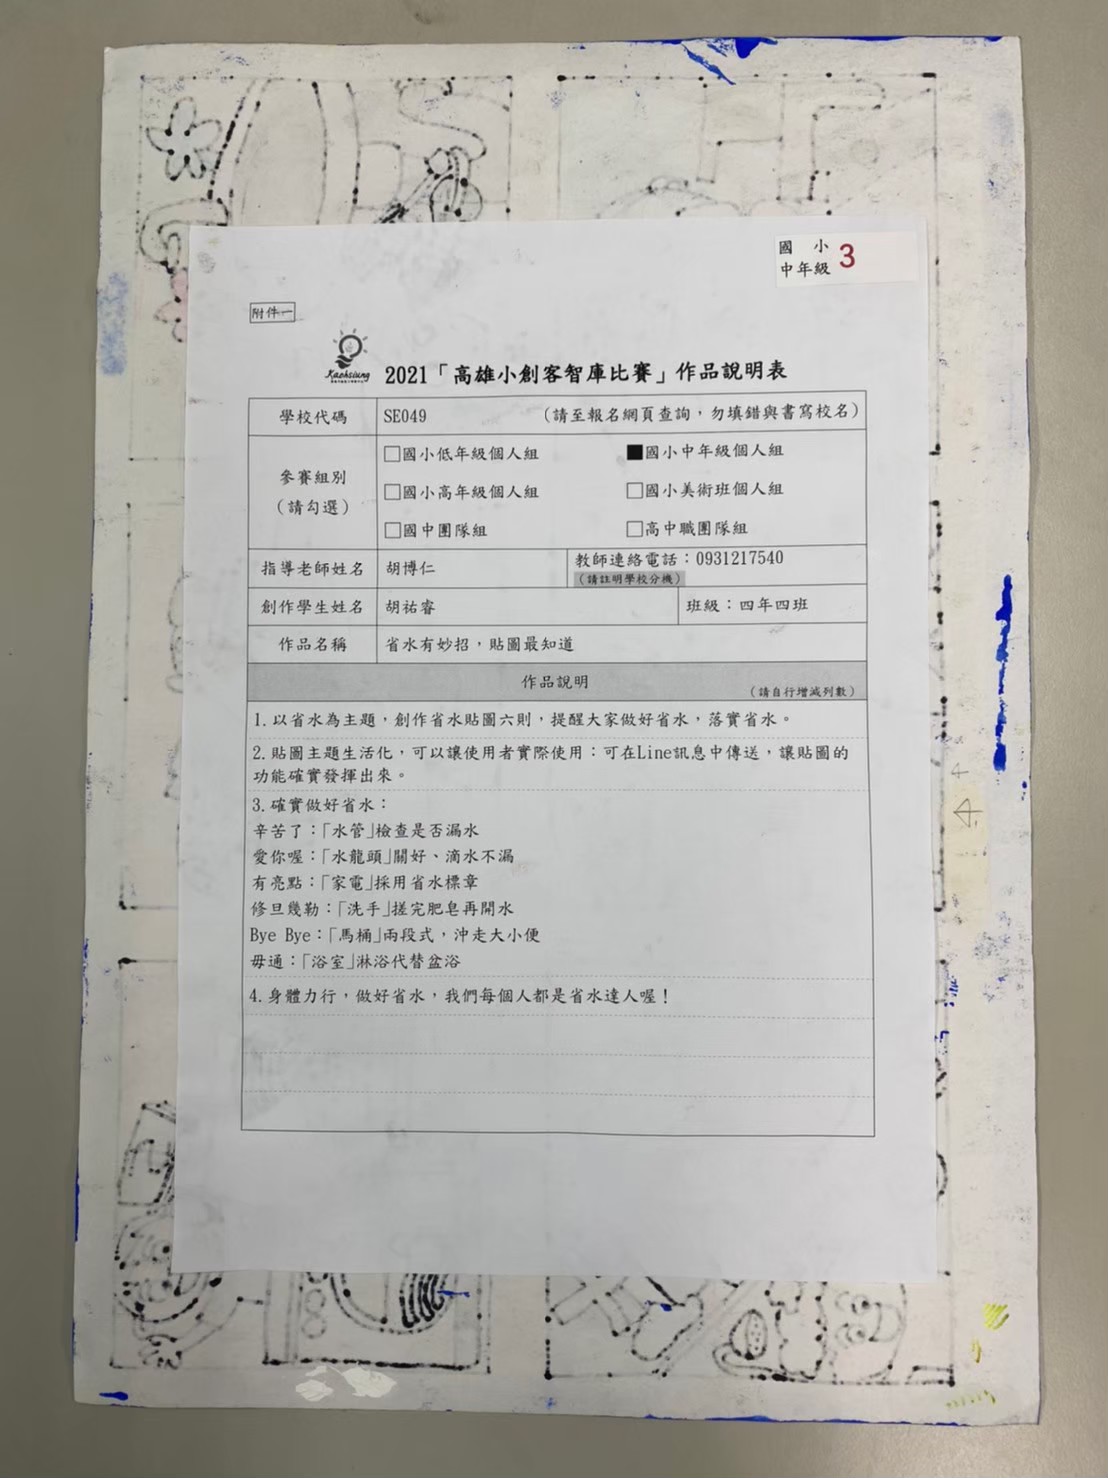 國 小
中年級 3
附件一
Kaohsiung
2021「高雄小創客智庫比賽」作品說明表
學校代碼 SE049 (請至報名網頁查詢，勿填錯與書寫校名)
參賽組別
(請勾選)
□國小低年級個人組 ■國小中年級個人組
□國小高年級個人組 □國小美術班個人組
□國中團隊組 □高中職團隊組
指導老師姓名 胡博仁 教師連絡電話：0931217540
(請註明學校分機)
創作學生姓名 胡祐睿 班級：四年四班
作品名稱 省水有妙招，貼圖最知道
作品說明 (請自行增減列數)
1.以省水為主題，創作省水貼圖六則，提醒大家做好省水，落實省水。
2.貼圖主題生活化，可以讓使用者實際使用：可在Line訊息中傳送，讓貼圖的
功能確實發揮出來。
3.確實做好省水：
辛苦了：「水管」檢查是否漏水
愛你喔：「水龍頭」關好、滴水不漏
有亮點：「家電」採用省水標章
修旦幾勒：「洗手」搓完肥皂再開水
Bye Bye：「馬桶」兩段式，沖走大小便
毋通：「浴室」淋浴代替盆浴
4.身體力行，做好省水，我們每個人都是省水達人喔！